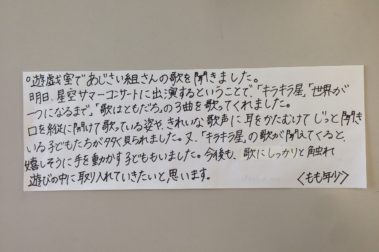 ○遊戯室であじさい組さんの歌を聞きました。
明日、星空サマーコンサートに出演するということで、「キラキラ星」「世界が
一つになるまで」「歌はともだち」の3曲を歌ってくれました。
口を縦に開けて歌っている姿や、きれいな歌声に耳をかたむけてじっと聞き
いる子どもたちが多く見られました。又、「キラキラ星」の歌が聞えてくると、
嬉しそうに手を動かす子どももいました。今後も、歌にしっかりと触れ
遊びの中に取り入れていきたいと思います。